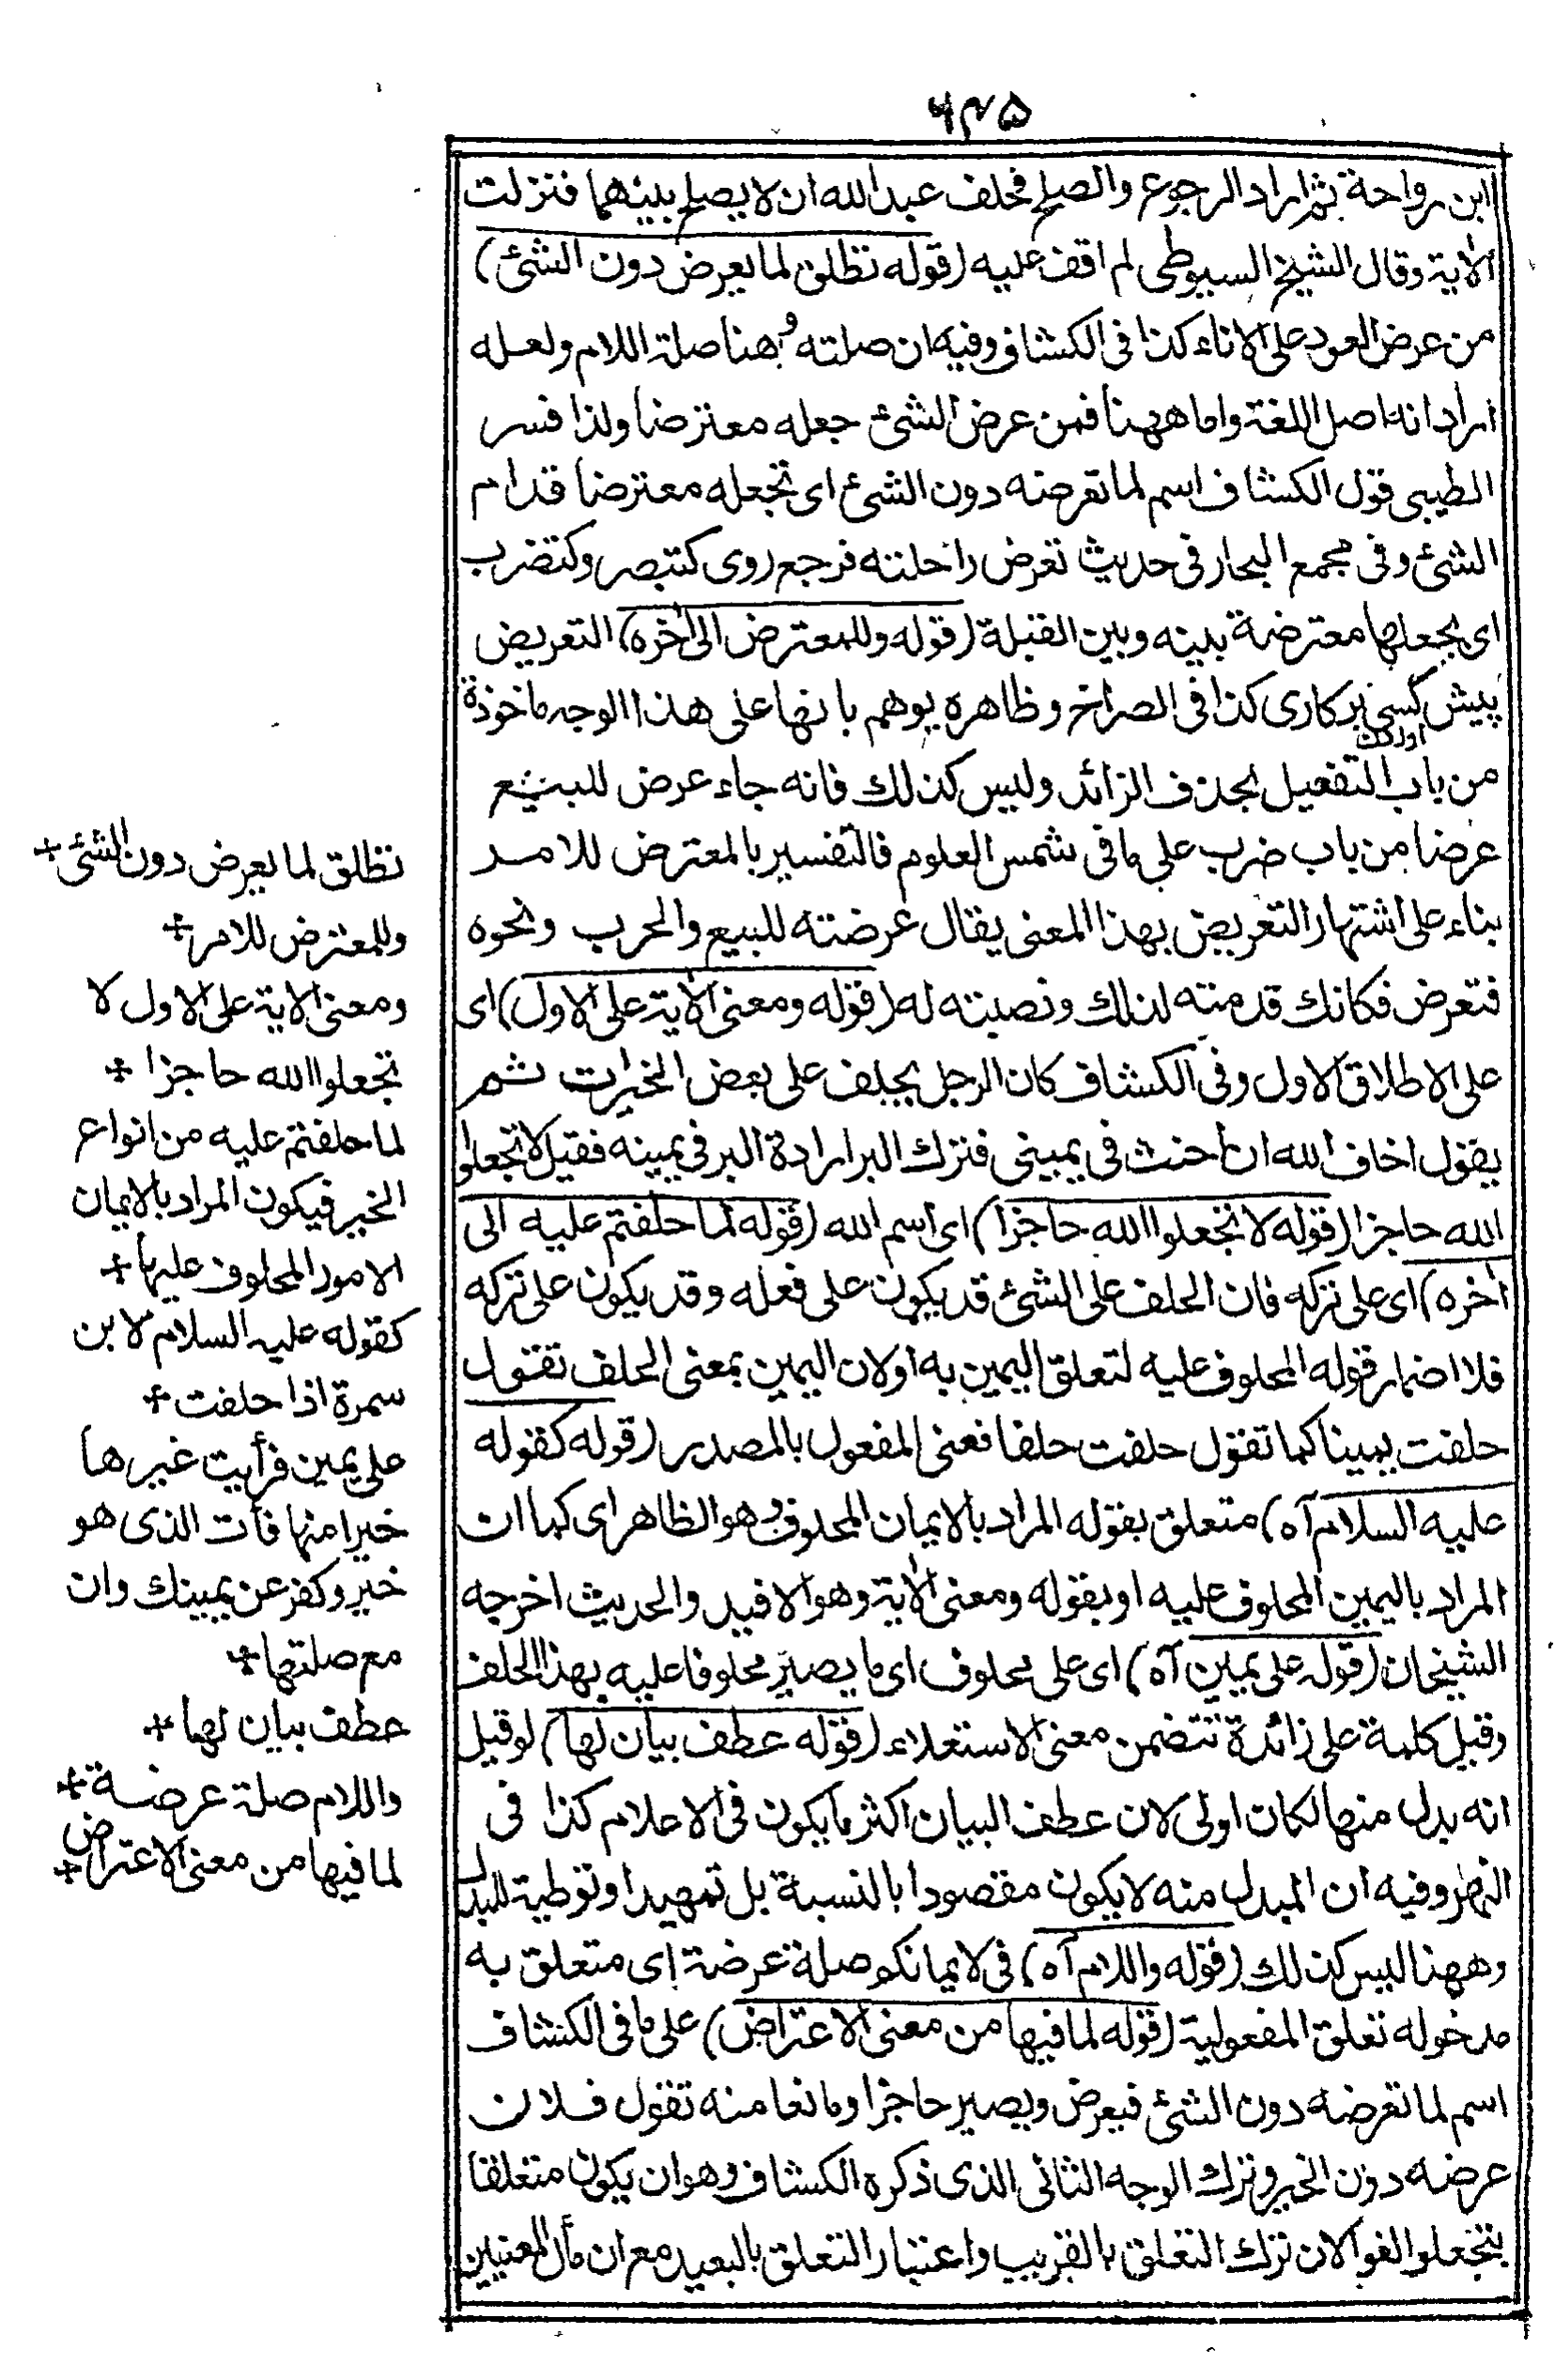 ۶۴۵
ابن رواحة ثم اراد الرجوع والصلح فحلف عبد الله ان لا يصلح بينهما فنزلت
الاية وقال الشيخ السيوطى لم اقف عليه (قوله تطلق لما يعرض دون الشئ)
من عرض العود على الاناء كذا فى الكشاف وفيه ان صلته وههنا صلة اللام ولعله
اراد انه اصل اللغة واما ههنا فمن عرض الشئ جعله معترضا ولذا فسر
الطيبى قول الكشاف اسم لما تعرضه دون الشئ اى تجعله معترضا قدام
الشئ وفى مجمع البحار فى حديث تعرض راحلته فرجع روى كتبصر وكتضرب
اى يجعلها معترضة بينه وبين القبلة (قوله وللمعترض الى اٰخره) التعريض
پيش كسى بر كارى كذا فى الصراح وظاهره يوهم بانها على هذا الوجه ماخوذة
اوردن
من باب التفعيل بحذف الزائد وليس كذلك فانه جاء عرض للبيع
عرضا من باب ضرب على ما فى شمس العلوم فالتفسير بالمعترض للامر
بناء على اشتهار التعريض بهذا المعنى يقال عرضته للبيع والحرب ونحوه
فتعرض فكانك قدمته لذلك ونصبته له (قوله ومعنى الاٰية على الاول) اى
على الاطلاق الاول وفى الكشاف كان الرجل يحلف على بعض الخيرات ثم
يقول اخاف الله ان احنث فى يمينى فترك البر ارادة البر فى يمينه فقيل لا تجعلوا
الله حاجزا (قوله لا تجعلوا الله حاجزا) اى اسم الله (قوله لما حلفتم عليه الى
اٰخره) اى على تركه فان الحلف على الشئ قد يكون على فعله وقد يكون على تركه
فلا اضمار قوله المحلوف عليه لتعلق اليمين به او لان اليمين بمعنى الحلف تقول
حلفت يمينا كما تقول حلفت حلفا فعنى المفعول بالمصدر (قوله كقوله
عليه السلام آه) متعلق بقوله المراد بالايمان المحلوف وهو الظاهر اى كما ان
المراد باليمين المحلوف عليه او بقوله ومعنى الاٰية وهو الافيد والحديث اخرجه
الشيخان (قوله على يمين آه) اى على محلوف اى ما يصير محلوفا عليه بهذا الحلف
وقيل كلمة على زائدة تتضمن معنى الاستعلاء (قوله عطف بيان لها) لو قيل
انه بدل منها لكان اولى لان عطف البيان اكثر ما يكون فى الاعلام كذا فى
النهر وفيه ان المبدل منه لا يكون مقصودا بالنسبة بل تمهيدا وتوطية للبدل
وههنا ليس كذلك (قوله واللام آه) فى لايمانكم صلة عرضة اى متعلق به
مدخوله تعلق المفعولية (قوله لما فيها من معنى الاعتراض) على ما فى الكشاف
اسم لما تعرضه دون الشئ فيعرض ويصير حاجزا ومانعا منه تقول فلان
عرضه دون الخير وترك الوجه الثانى الذى ذكره الكشاف وهو ان يكون متعلقا
بتجعلوا لغوا لان ترك التعلق بالقريب واعتبار التعلق بالبعيد مع ان مأل المعنيين
تطلق لما يعرض دون الشئ +
وللمعترض للامر +
ومعنى الاية على الاول لا
تجعلوا الله حاجزا +
لما حلفتم عليه من انواع
الخير فيكون المراد بالايمان
الامور المحلوف عليها +
كقوله عليه السلام لابن
سمرة اذا حلفت +
على يمين فرأيت غيرها
خيرا منها فأت الذى هو
خير وكفر عن يمينك وان
مع صلتها +
عطف بيان لها +
واللام صلة عرضة +
لما فيها من معنى الاعتراض +